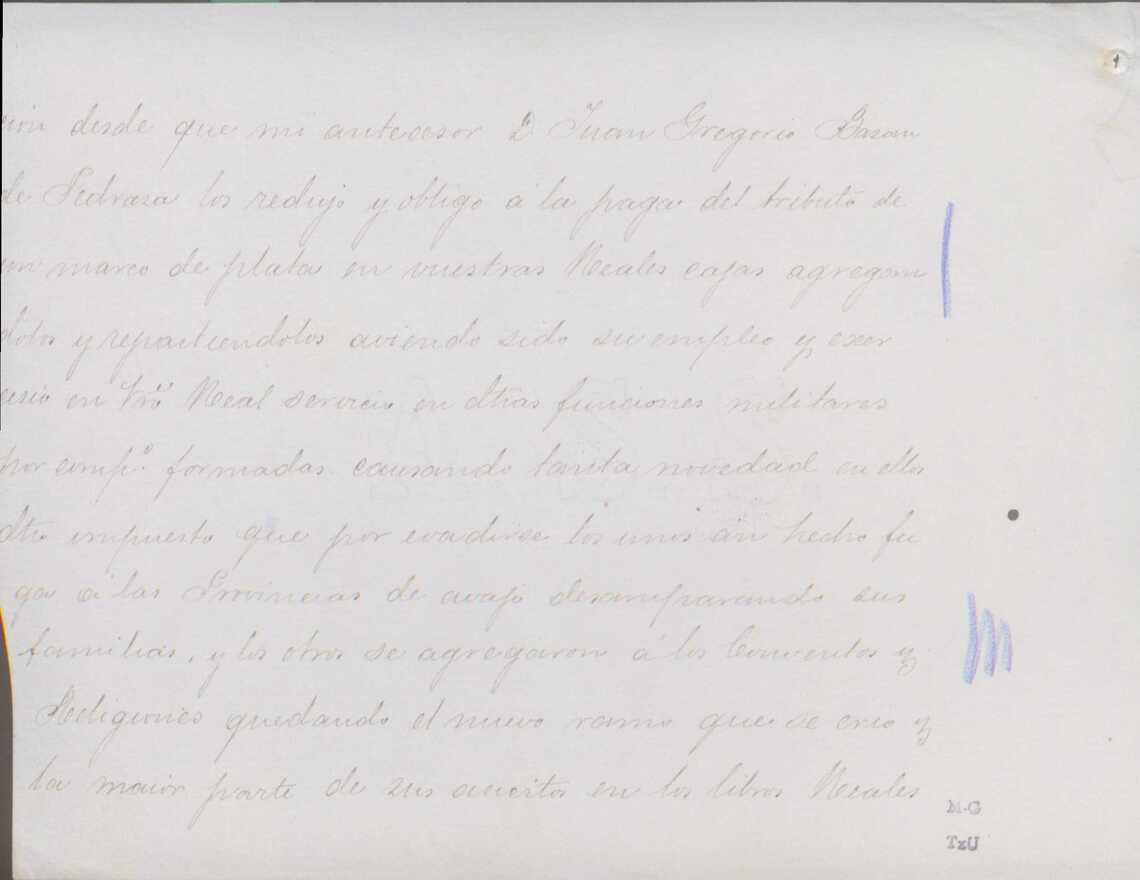 1
cion desde que mi antecesor D Juan Gregorio Basan
de Pedrasa los redujo y obligo á la paga del tributo de
un marco de plata en vuestras Reales cajas agregan
dolos y repartiendolos aviendo sido su empleo y exer
cisio en Vro Real servicio en dhas funciones militares
por comp.s formadas causando tanta novedad en ellos
dho impuesto que por evadirse los unos an hecho fu
ga á las Provincias de avajo desamparando sus
familias, y los otros se agregaron á los Conventos y
Religiones quedando el nuevo ramo que se crio y
la maior parte de sus en los libros Reales
M-G
TzU